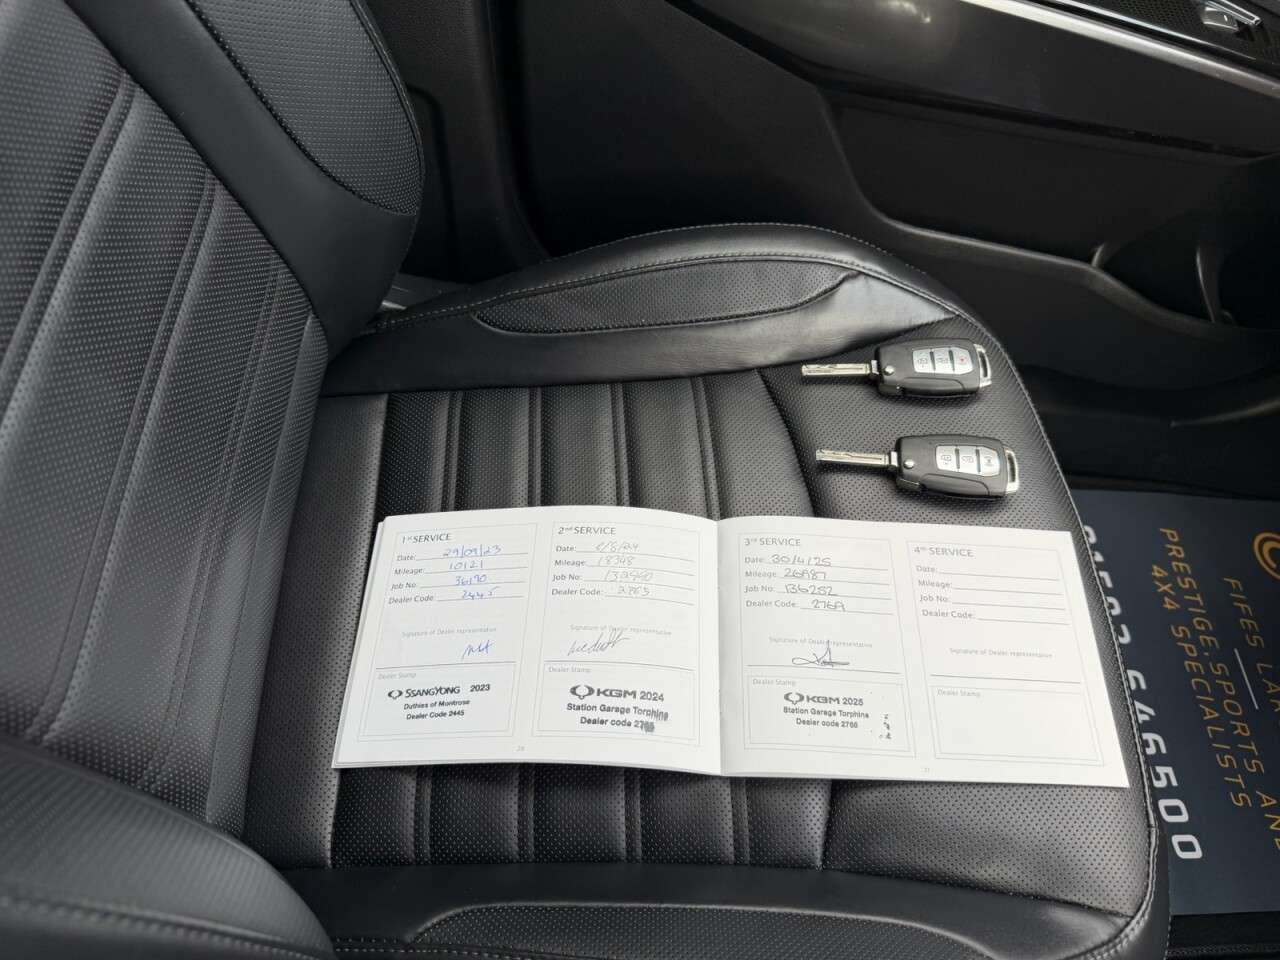 1st SERVICE
Date: 29/09/23
Mileage: 10121
Job No: 36190
Dealer Code: 2445
Signature of Dealer representative
Dealer Stamp
SSANGYONG 2023
Duthies of Montrose
Dealer Code 2445
20
2nd SERVICE
Date: /8/24
Mileage: 18348
Job No:
Dealer Code: 2765
Signature of Dealer representative
Dealer Stamp
KGM 2024
Station Garage Torphins
Dealer code
3rd SERVICE
Date: 30/4/25
Mileage: 26987
Job No: 136252
Dealer Code:
Signature of Dealer representative
Dealer Stamp
KGM 2025
Station Garage Torphins
Dealer code 2766
4th SERVICE
Date:
Mileage:
Job No:
Dealer Code:
Signature of Dealer representative
Dealer Stamp
21
FIFES
PRESTIGE, SPORTS AND
4X4 SPECIALISTS
646500